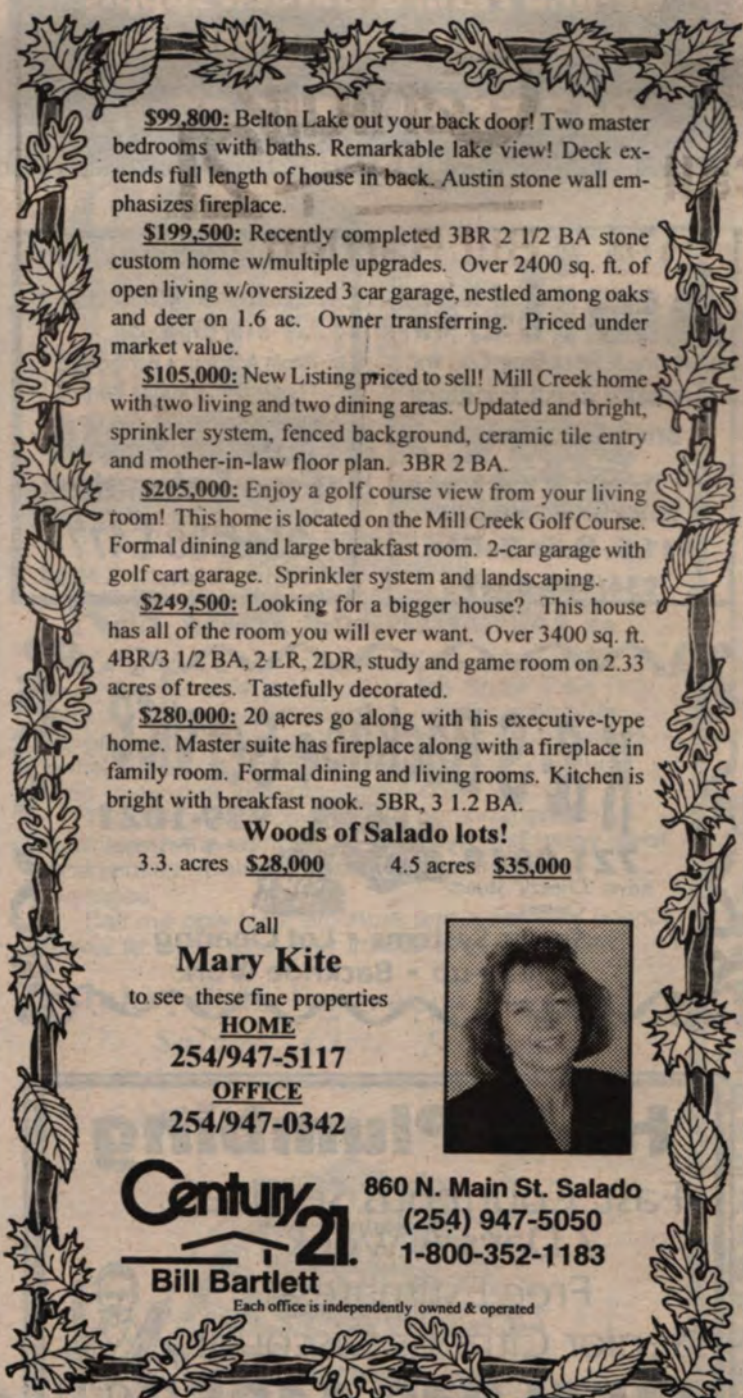 $99,800: Belton Lake out your back door! Two master
bedrooms with baths. Remarkable lake view! Deck ex-
tends full length of house in back. Austin stone wall em-
phasizes fireplace.
$199,500: Recently completed 3BR 2 1/2 BA stone
custom home w/multiple upgrades. Over 2400 sq. ft. of
open living w/oversized 3 car garage, nestled among oaks
and deer on 1.6 ac. Owner transferring. Priced under
market value.
$105,000: New Listing priced to sell! Mill Creek home
with two living and two dining areas. Updated and bright,
sprinkler system, fenced background, ceramic tile entry
and mother-in-law floor plan. 3BR 2 BA.
$205,000: Enjoy a golf course view from your living
room! This home is located on the Mill Creek Golf Course.
Formal dining and large breakfast room. 2-car garage with
golf cart garage. Sprinkler system and landscaping.
$249,500: Looking for a bigger house? This house
has all of the room you will ever want. Over 3400 sq. ft.
4BR/3 1/2 BA, 2 LR, 2DR, study and game room on 2.33
acres of trees. Tastefully decorated.
$280,000: 20 acres go along with his executive-type
home. Master suite has fireplace along with a fireplace in
family room. Formal dining and living rooms. Kitchen is
bright with breakfast nook. 5BR, 3 1.2 BA.
Woods of Salado lots!
3.3. acres $28,000 4.5 acres $35,000
Call
Mary Kite
to see these fine properties
HOME
254/947-5117
OFFICE
254/947-0342
Century 21.
Bill Bartlett
860 N. Main St. Salado
(254) 947-5050
1-800-352-1183
Each office is independently owned & operated